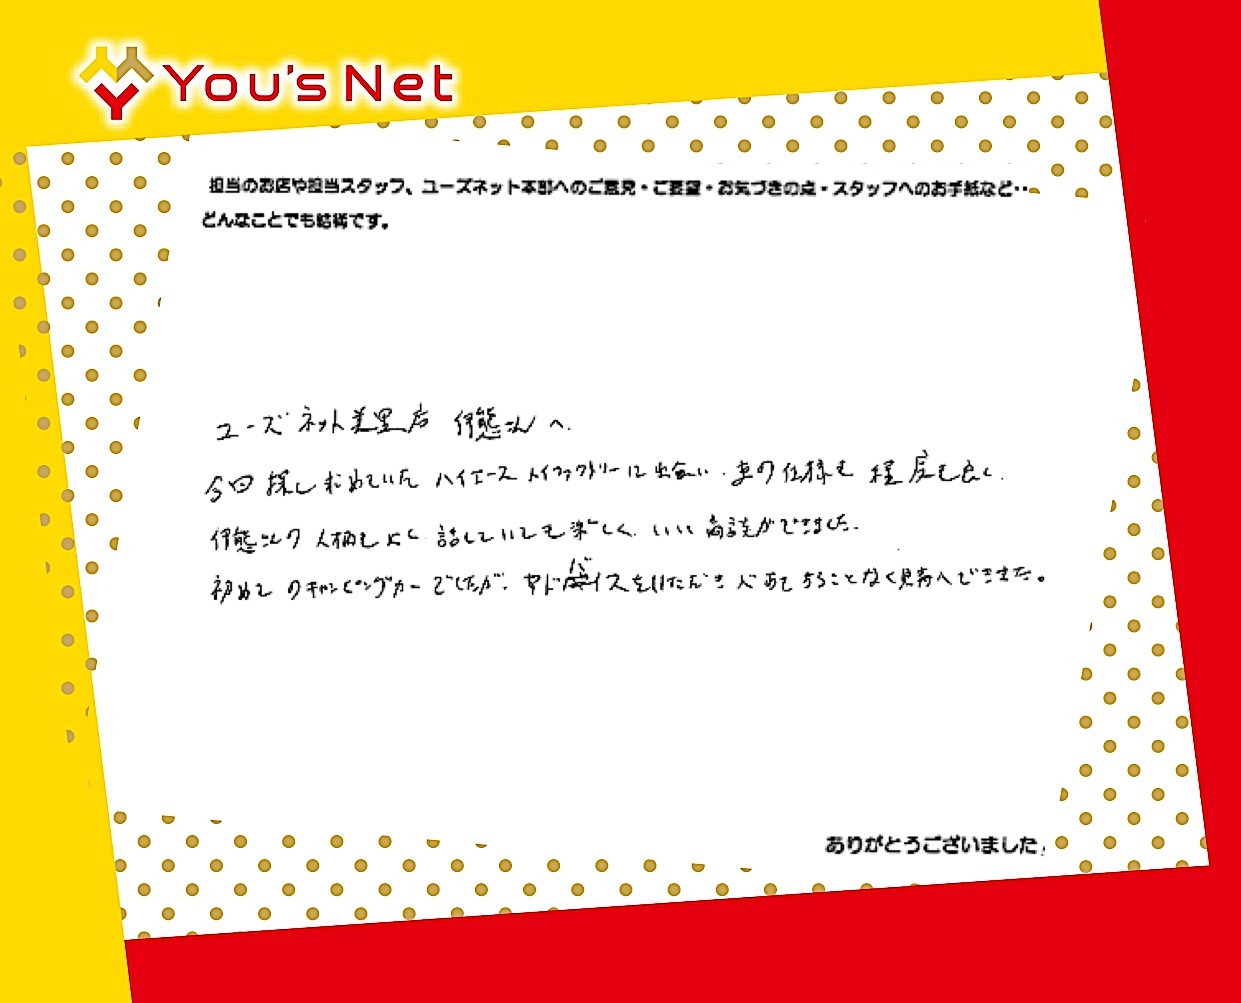 You's Net
担当のお店や担当スタッフ、ユーズネット本部へのご意見・ご要望・お気づきの点・スタッフへのお手紙など‥
どんなことでも結構です。
ユーズネット美里店 伊熊さんへ.
今回探し求めていたハイエース トイファクトリーに出会い、車の仕様も程度も良く、
伊熊さんの人柄もよく 話していても楽しく、いい商談ができました.
初めてのキャンピングカーでしたが、アドバイスをいただき
ることなく
できました。
ありがとうございました